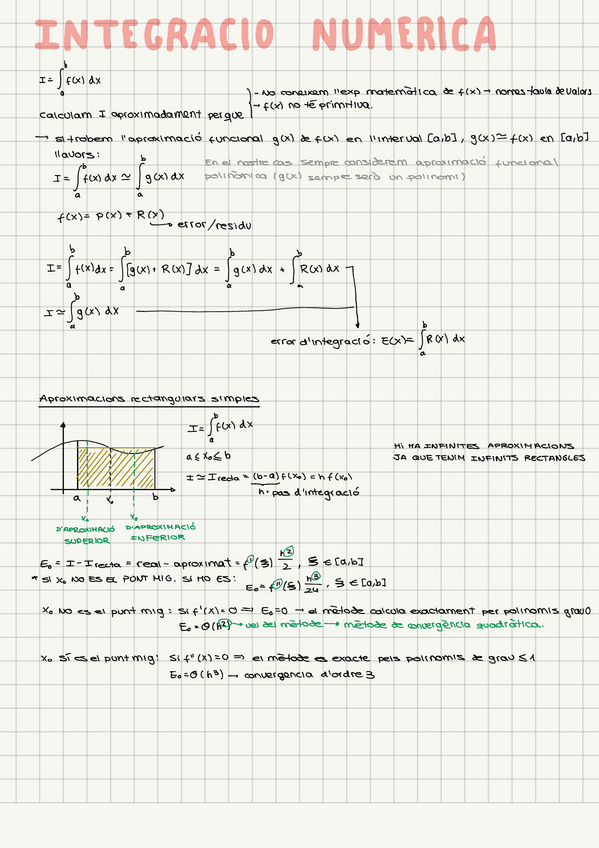 INTEGRACIO NUMERICA
I = ∫ₐᵇ f(x) dx
- No coneixem l'exp matemàtica de f(x) → només taula de valors
calculam I aproximadament perquè
→ f(x) no té primitiva.
→ si trobem l'aproximació funcional g(x) de f(x) en l'interval [a,b], g(x) ≃ f(x) en [a,b]
llavors:
I = ∫ₐᵇ f(x) dx ≃ ∫ₐᵇ g(x) dx
En el nostre cas sempre considerem aproximació funcional
polinòmica (g(x) sempre serà un polinomi)
f(x) = P(x) + R(x)
→ error/residu
I = ∫ₐᵇ f(x) dx = ∫ₐᵇ [g(x) + R(x)] dx = ∫ₐᵇ g(x) dx + ∫ₐᵇ R(x) dx
I ≃ ∫ₐᵇ g(x) dx
error d'integració: E(x) = ∫ₐᵇ R(x) dx
Aproximacions rectangulars simples
I = ∫ₐᵇ f(x) dx
a ≤ x₀ ≤ b
I ≃ I recta = (b-a) f(x₀) = h f(x₀)
h: pas d'integració
HI HA INFINITES APROXIMACIONS
JA QUE TENIM INFINITS RECTANGLES
a x₀ b
x₀ x₀
D'APROXIMACIÓ SUPERIOR
D'APROXIMACIÓ INFERIOR
E₀ = I - I recta = real - aproximat = f'(ξ) h²/2, ξ ∈ [a,b]
* SI X₀ NO ES EL PUNT MIG. SI HO ES: E₀ = f''(ξ) h³/24, ξ ∈ [a,b]
X₀ NO es el punt mig: Si f'(x) = 0 ⇒ E₀ = 0 → el mètode calcula exactament per polinomis grau 0
E₀ = O(h²) → vel del mètode → mètode de convergència quadràtica.
X₀ SÍ es el punt mig: Si f''(x) = 0 ⇒ el mètode es exacte pels polinomis de grau ≤ 1
E₀ = O(h³) → convergencia d'ordre 3